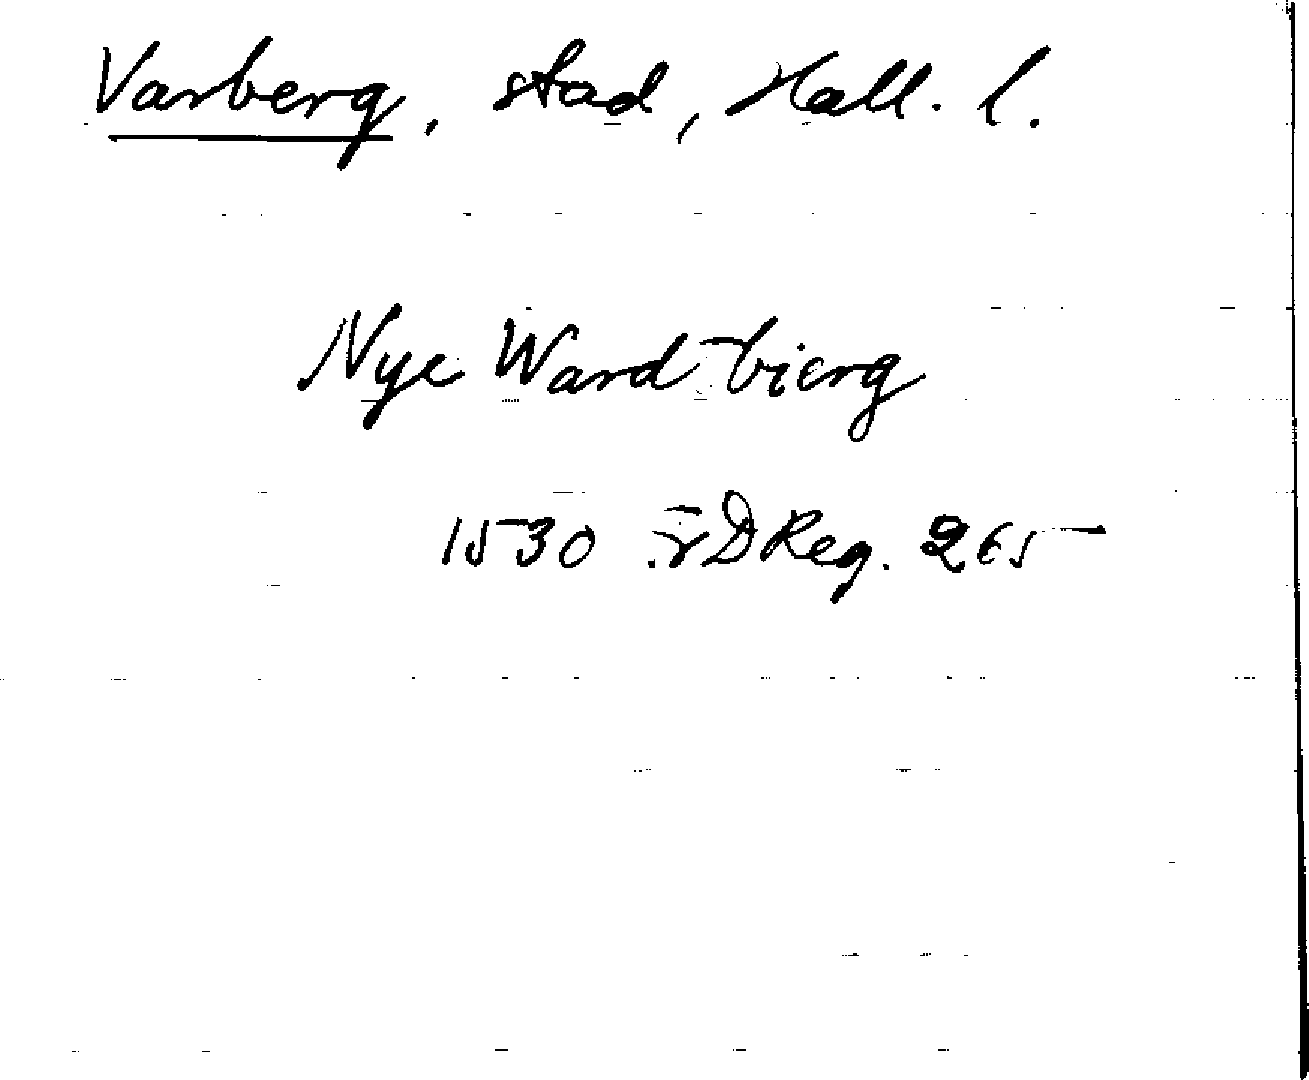 Varberg, stad, Hall. l.
Nye Wardbierg
1530 ÆDReg. 265